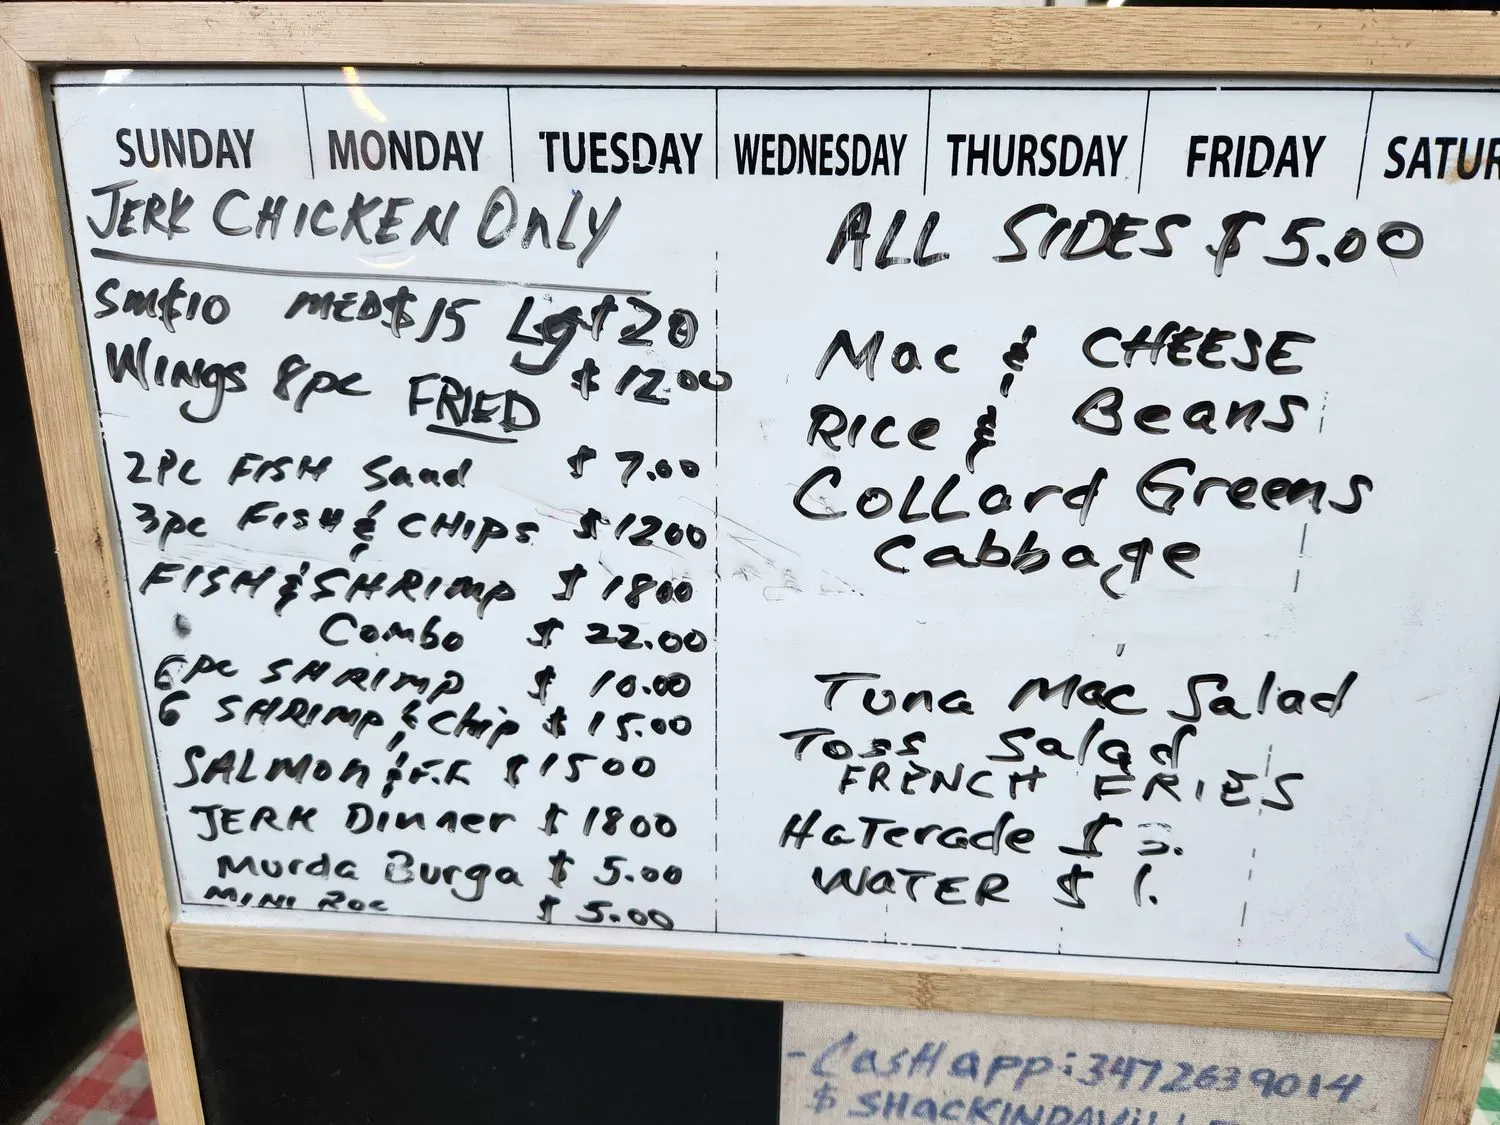 SUNDAY MONDAY TUESDAY WEDNESDAY THURSDAY FRIDAY SATUR
JERK CHICKEN Only
Sm $10 MED $15 Lg $20
WINGS 8pc FRIED $12.00
2PC FISH Sand $7.00
3pc FISH & CHIPS $1200
FISH & SHRIMP $1800
Combo $22.00
6pc SHRIMP $10.00
6 SHRIMP & Chip $15.00
SALMON & F.F $1500
JERK Dinner $1800
Murda Burga $5.00
MINI $5.00
ALL SIDES $5.00
Mac & CHEESE
RICE & Beans
Collard Greens
Cabbage
Tuna Mac Salad
Toss Salad
FRENCH FRIES
HaTerade $3.
WATER $1.
-CasHapp:3472639014